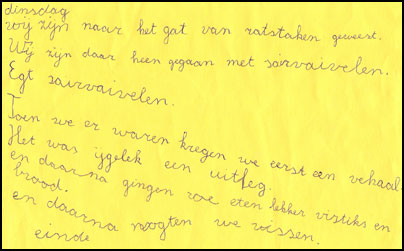 dinsdag
wij zijn naar het gat van ratstaken geweest.
Wij zijn daar heen gegaan met sairvaivelen.
Egt sairvaivelen.
Toen we er waren kregen we eerst een vehaal.
Het was ijgelek een uitleg.
en daarna gingen we eten lekker vistiks en
brood.
en daarna mogten we vissen.
einde